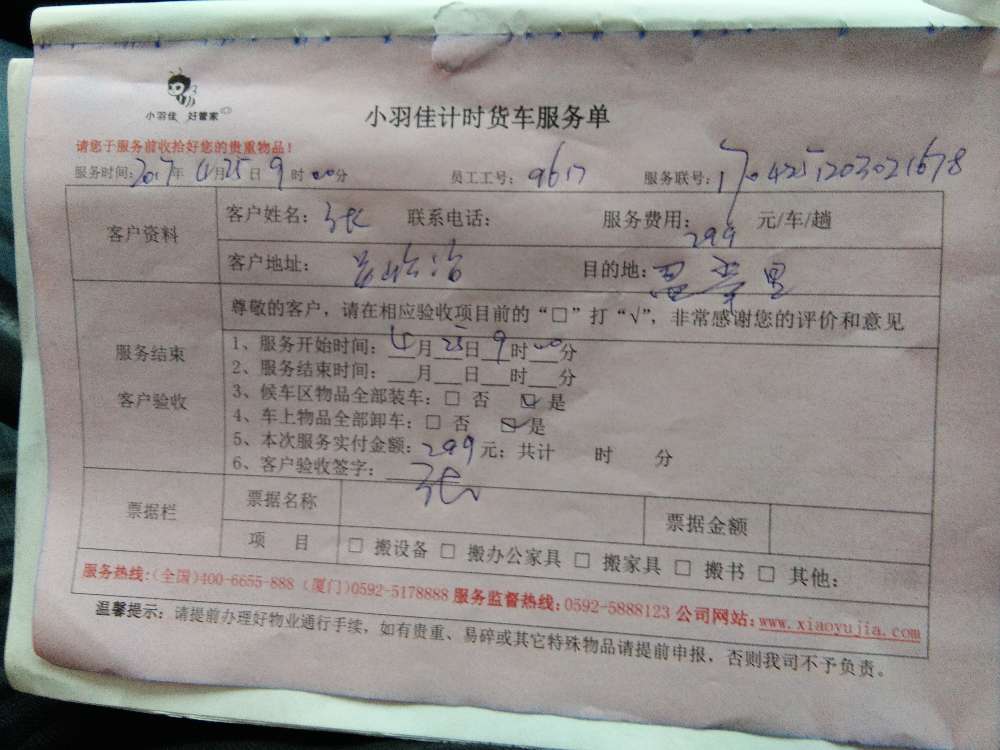 小羽佳 好管家
小羽佳计时货车服务单
请您于服务前收拾好您的贵重物品！
服务时间：2017年4月25日9时00分 员工工号：9617 服务联号：1704251203021678
客户资料
客户姓名：张 联系电话： 服务费用：299 元/车/趟
客户地址： 目的地：
尊敬的客户，请在相应验收项目前的“□”打“√”，非常感谢您的评价和意见
服务结束
客户验收
1、服务开始时间：4月25日9时00分
2、服务结束时间：___月___日___时___分
3、候车区物品全部装车：□ 否 ☑ 是
4、车上物品全部卸车：□ 否 ☑ 是
5、本次服务实付金额：299元；共计 时 分
6、客户验收签字：张
票据栏
票据名称 票据金额
项 目 □ 搬设备 □ 搬办公家具 □ 搬家具 □ 搬书 □ 其他：
服务热线：(全国)400-6655-888 (厦门)0592-5178888 服务监督热线：0592-5888123 公司网站：www.xiaoyujia.com
温馨提示：请提前办理好物业通行手续，如有贵重、易碎或其它特殊物品请提前申报，否则我司不予负责。